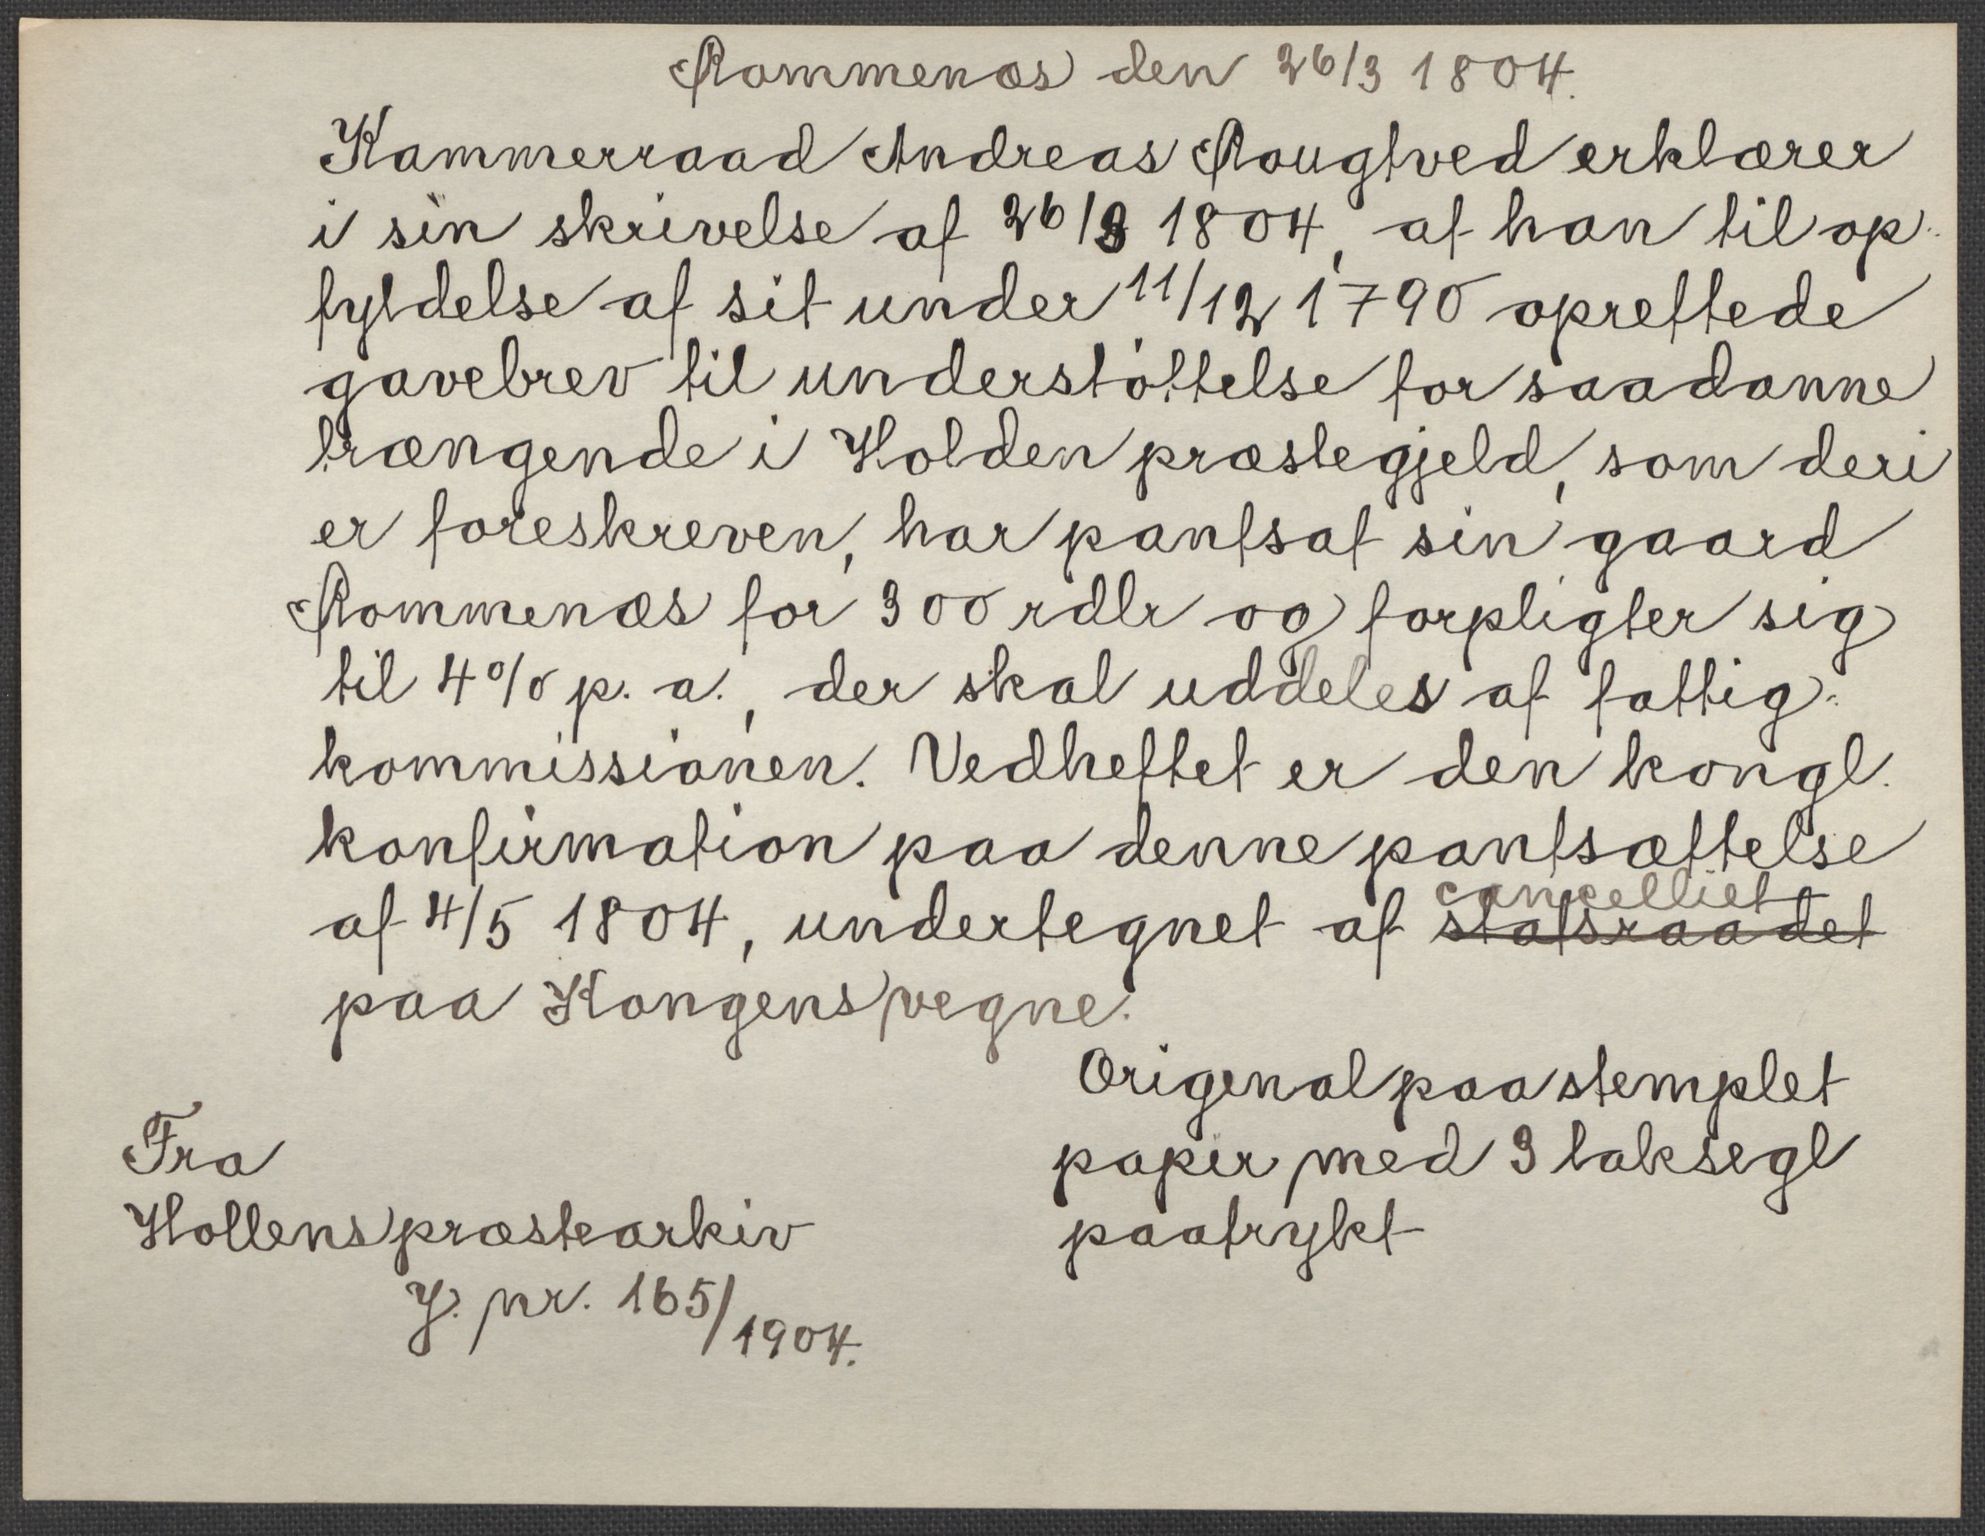 Rommenæs den 26/3 1804.
Kammerraad Andreas Rougtved erklærer
i sin skrivelse af 26/3 1804, at han til op-
fyldelse af sit under 11/12 1790 oprettede
gavebrev til understøttelse for saadanne
trængende i Holden præstegjeld, som deri
er foreskreven, har pantsat sin gaard
Rommenæs for 300 rdlr og forpligter sig
til 4% p. a., der skal uddeles af fattig-
kommissionen. Vedheftet er den kongl.
konfirmation paa denne pantsættelse
cancelliet
af 4/5 1804, undertegnet af statsraadet
paa Kongens vegne.
Origenal paa stemplet
papir med 3 laksegl
paatrykt
Fra
Hollens præstearkiv
J. nr. 165/1904.